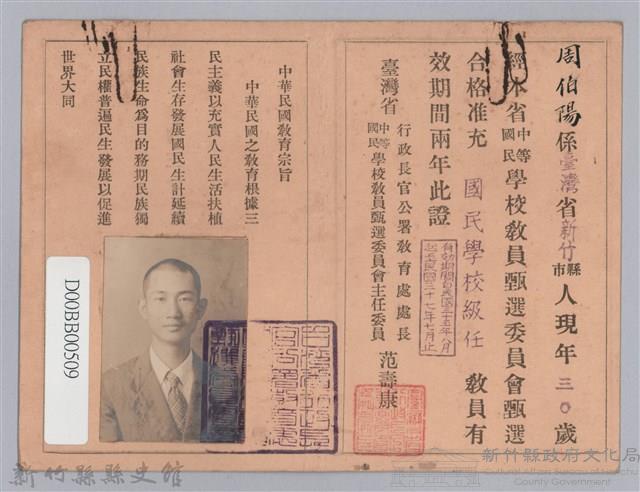 周伯陽係臺灣省新竹縣市人現年三〇歲
經本省中等國民學校教員甄選委員會甄選
合格准充國民學校級任教員有
效期間兩年此證
有効期間自民國三十五年八月
起至民國三十七年七月止
行政長官公署教育處處長
臺灣省中等國民學校教員甄選委員會主任委員 范壽康
中華民國教育宗旨
中華民國之教育根據三
民主義以充實人民生活扶植
社會生存發展國民生計延續
民族生命為目的務期民族獨
立民權普遍民生發展以促進
世界大同
D00BB00509
新竹縣縣史館
新竹縣政府文化局